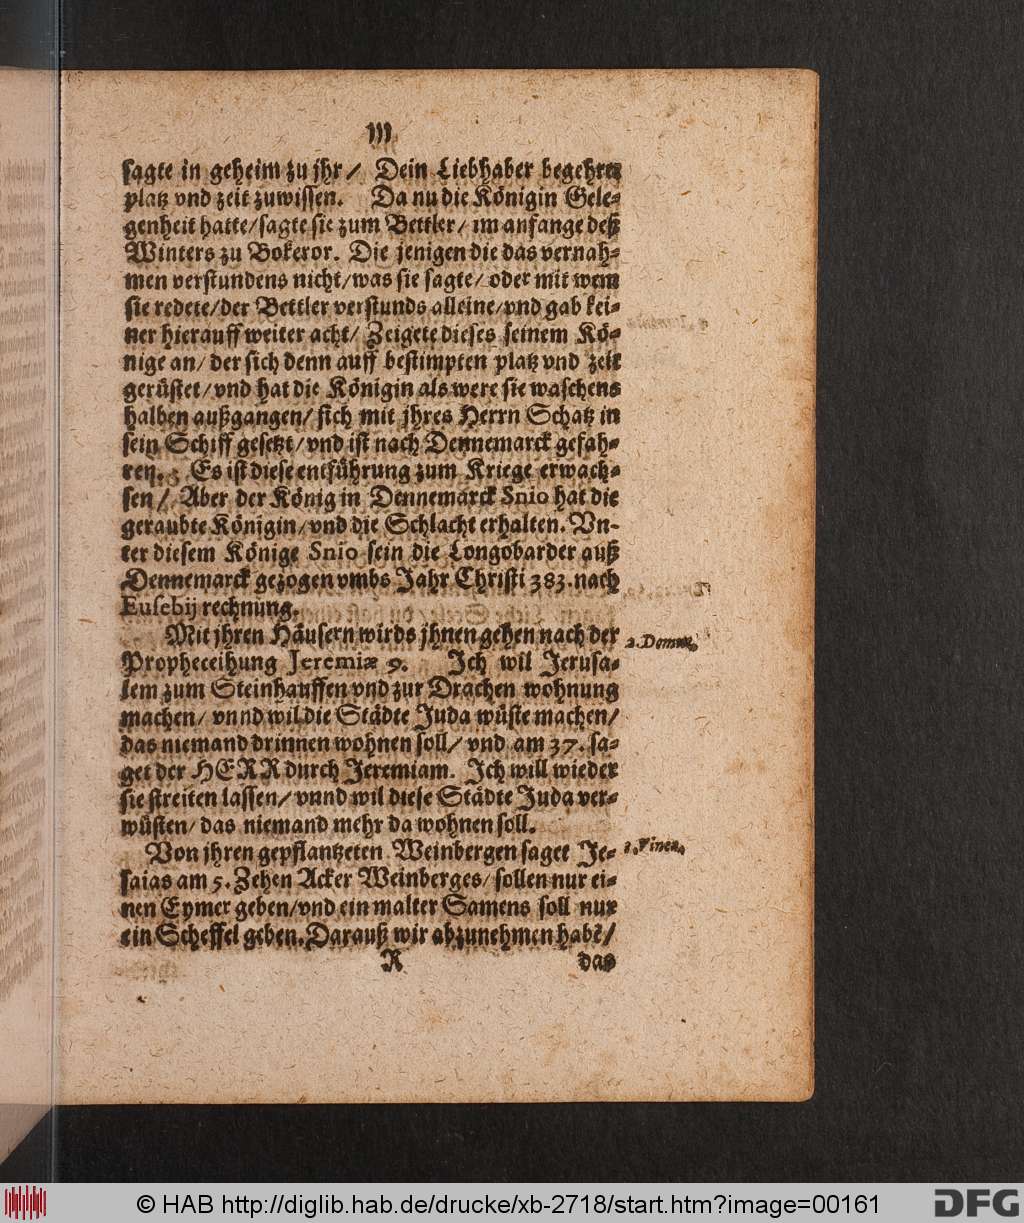 111
sagte in geheim zu jhr/ Dein Liebhaber begehret
platz vnd zeit zuwissen. Da nu die Königin Gele-
genheit hatte/sagte sie zum Bettler/ im anfange deß
Winters zu Bokeror. Die jenigen die das vernah-
men verstundens nicht/was sie sagte/ oder mit wem
sie redete/der Bettler verstunds alleine/vnd gab kei-
ner hierauff weiter acht/ Zeigete dieses seinem Kö-
nige an/ der sich denn auff bestimpten platz vnd zeit
gerüstet/vnd hat die Königin als were sie waschens
halben außgangen/ sich mit jhres Herrn Schatz in
sein Schiff gesetzt/vnd ist nach Dennemarck gefah-
ren. Es ist diese entführung zum Kriege erwach-
sen/ Aber der König in Dennemarck Snio hat die
geraubte Königin/vnd die Schlacht erhalten. Vn-
ter diesem Könige Snio sein die Longobarder auß
Dennemarck gezogen vmbs Jahr Christi 383. nach
Eusebij rechnung.
Mit jhren Häusern wirds jhnen gehen nach der
2. Domus.
Propheceihung Jeremiæ 9. Ich wil Jerusa-
lem zum Steinhauffen vnd zur Drachen wohnung
machen/ vnnd wil die Städte Juda wüste machen/
das niemand drinnen wohnen soll/ vnd am 37. sa-
get der HERR durch Jeremiam. Ich will wieder
sie streiten lassen/ vnnd wil diese Städte Juda ver-
wüsten/ das niemand mehr da wohnen soll.
Von jhren gepflantzeten Weinbergen saget Je-
saias am 5. Zehen Acker Weinberges/ sollen nur ei-
nen Eymer geben/vnd ein malter Samens soll nur
ein Scheffel geben. Darauß wir abzunehmen habẽ/
R das
© HAB http://diglib.hab.de/drucke/xb-2718/start.htm?image=00161
DFG